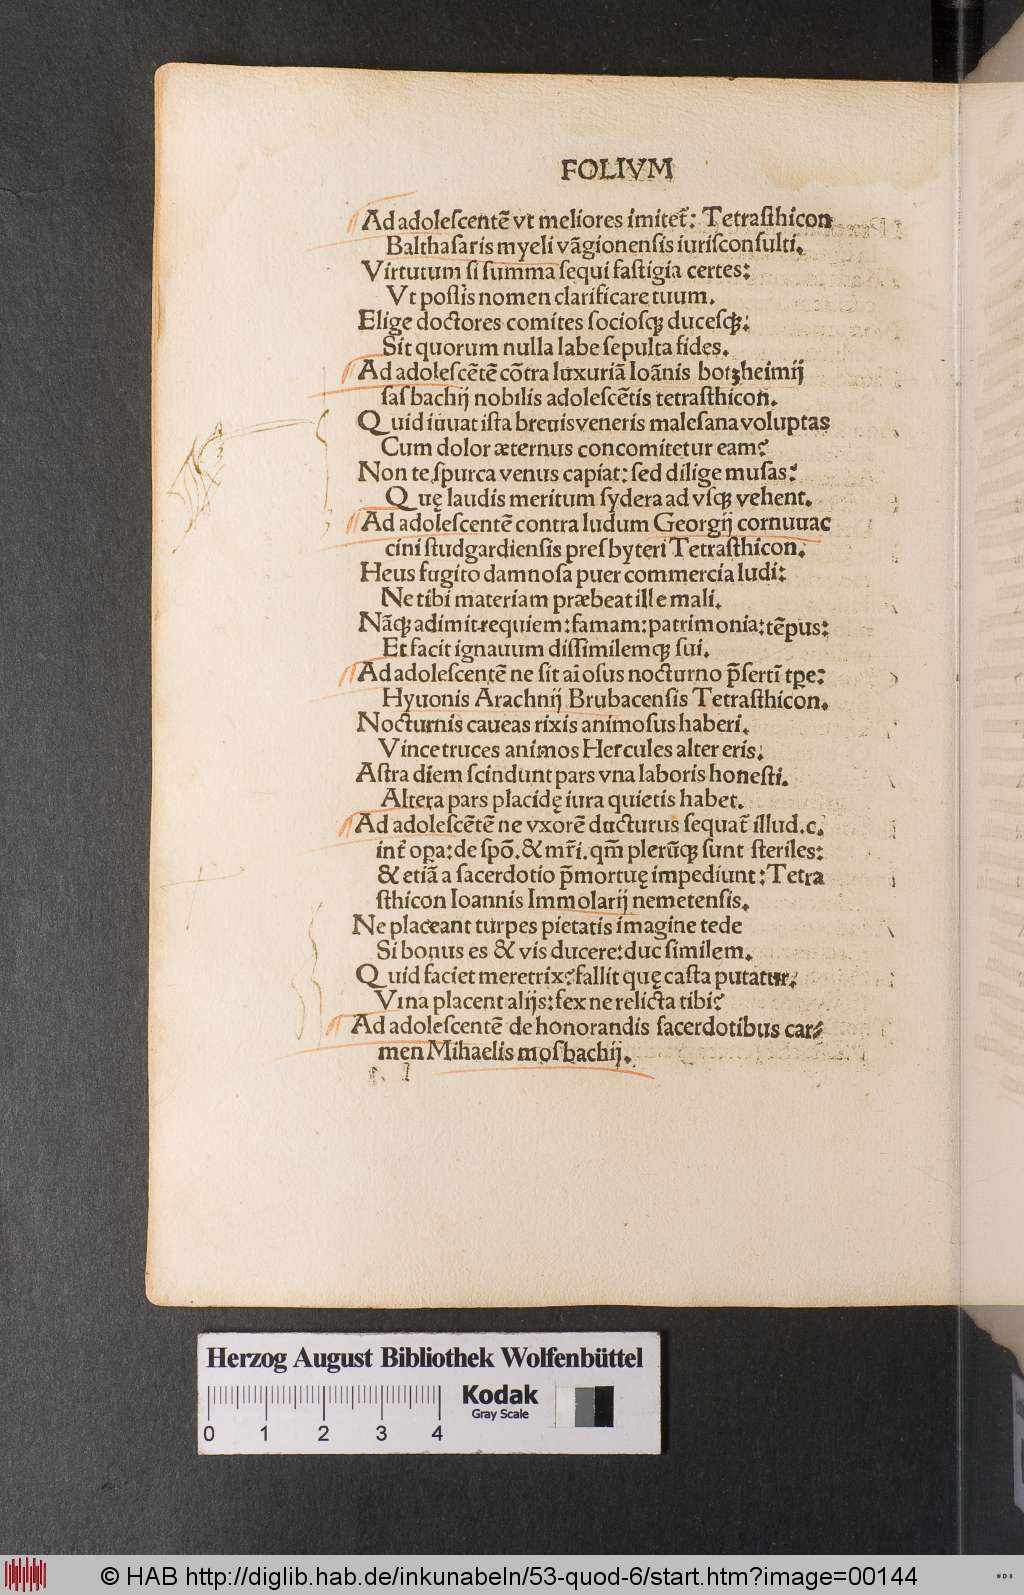 FOLIVM
Ad adolescentē vt meliores imitet̄: Tetrasthicon
Balthasaris myeli vāgionensis iurisconsulti.
Virtutum si summa sequi fastigia certes:
Vt possis nomen clarificare tuum.
Elige doctores comites sociosq; ducesq;:
Sit quorum nulla labe sepulta fides.
Ad adolescētē cōtra luxuriā Ioānis botzheimij
sasbachij nobilis adolescētis tetrasthicon.
Quid iuuat ista breuis veneris malesana voluptas
Cum dolor æternus concomitetur eam?
Non te spurca venus capiat: sed dilige musas:
Quę laudis meritum sydera ad vsq; vehent.
Ad adolescentē contra ludum Georgij cornuuac
cini studgardiensis presbyteri Tetrasthicon.
Heus fugito damnosa puer commercia ludi:
Ne tibi materiam præbeat ille mali.
Nāq; adimit requiem: famam: patrimonia: tēpus:
Et facit ignauum dissimilemq; sui.
Ad adolescentē ne sit aīosus nocturno p̄sertī tꝑe:
Hyuonis Arachnij Brubacensis Tetrasthicon.
Nocturnis caueas rixis animosus haberi.
Vince truces animos Hercules alter eris.
Astra diem scindunt pars vna laboris honesti.
Altera pars placidę iura quietis habet.
Ad adolescētē ne vxorē ducturus sequat̄ illud.c.
int̄ oꝑa: de spō. & mr̄i. qm̄ plerūq; sunt steriles:
& etiā a sacerdotio p̄mortuę impediunt: Tetra
sthicon Ioannis Immolarij nemetensis.
Ne placeant turpes pietatis imagine tede
Si bonus es & vis ducere: duc similem.
Quid faciet meretrix? fallit quę casta putatur.
Vina placent alijs: fex ne relicta tibi?
Ad adolescentē de honorandis sacerdotibus car⸗
men Mihaelis mosbachij.
Herzog August Bibliothek Wolfenbüttel
Kodak
Gray Scale
0 1 2 3 4
© HAB http://diglib.hab.de/inkunabeln/53-quod-6/start.htm?image=00144